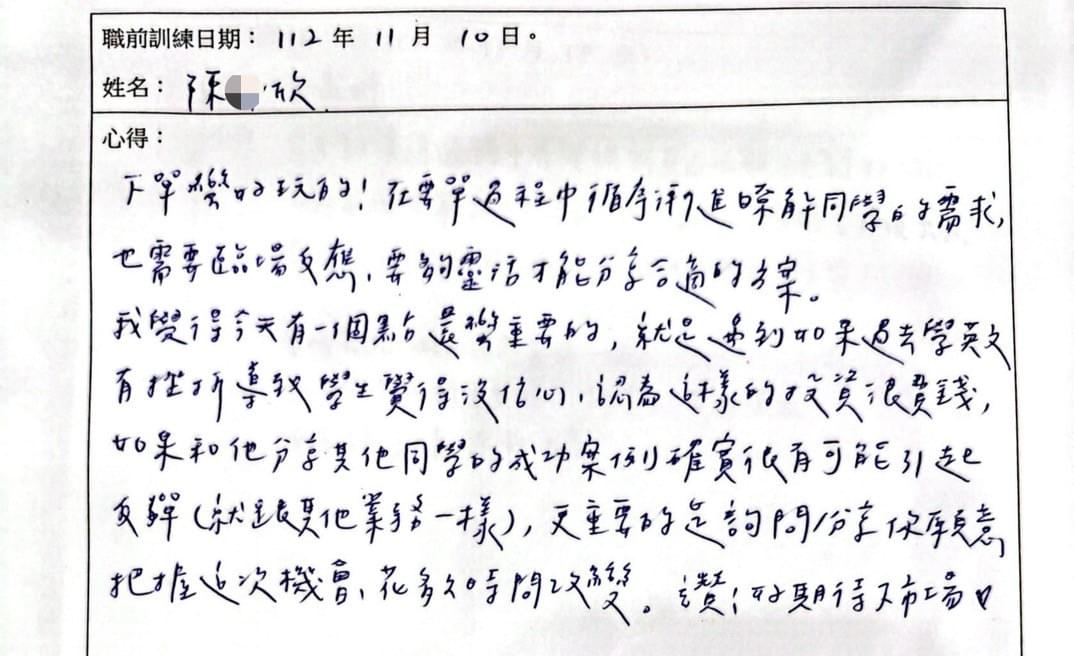 職前訓練日期：112 年 11 月 10 日。
姓名：陳 欣
心得：
下單蠻好玩的！在要單過程中循序漸進瞭解同學的需求,
也需要臨場反應、要夠靈活才能分享合適的方案。
我覺得今天有一個點還蠻重要的, 就是遇到如果過去學英文
有挫折導致學生覺得沒信心、認為這樣的投資很費錢,
如果和他分享其他同學的成功案例確實很有可能引起
反彈(就跟其他業務一樣), 更重要的是詢問/分享你願意
把握這次機會、花多久時間改變。讚！好期待市場日